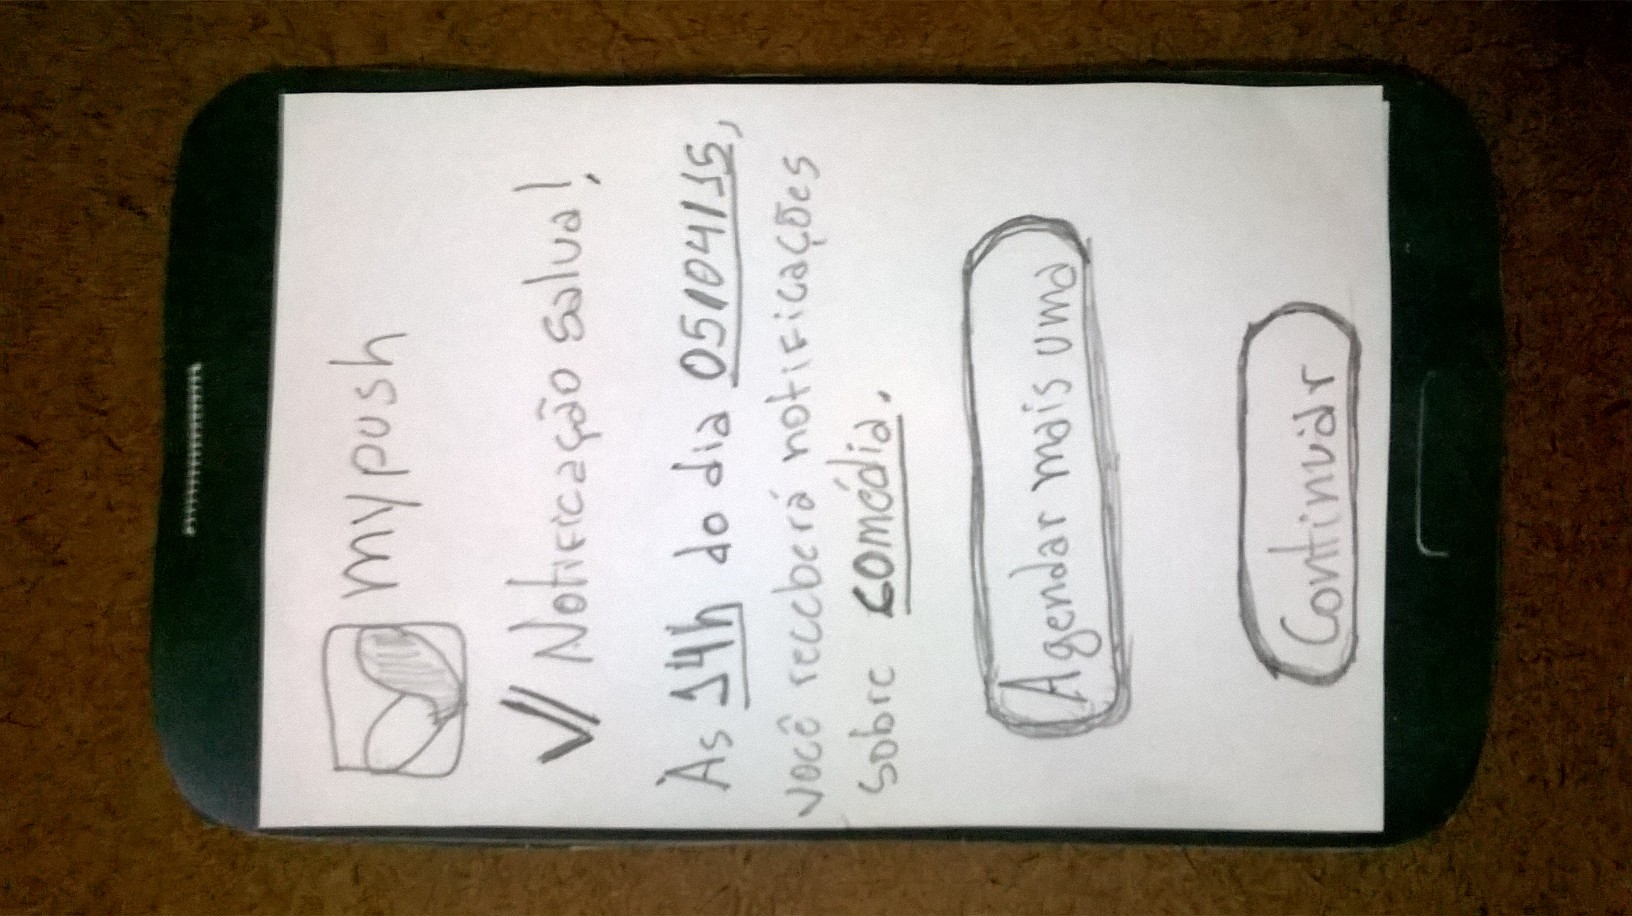 mypush
Notificação salva!
Às 14h do dia 05/04/15,
você receberá notificações
sobre comédia.
Agendar mais uma
Continuar